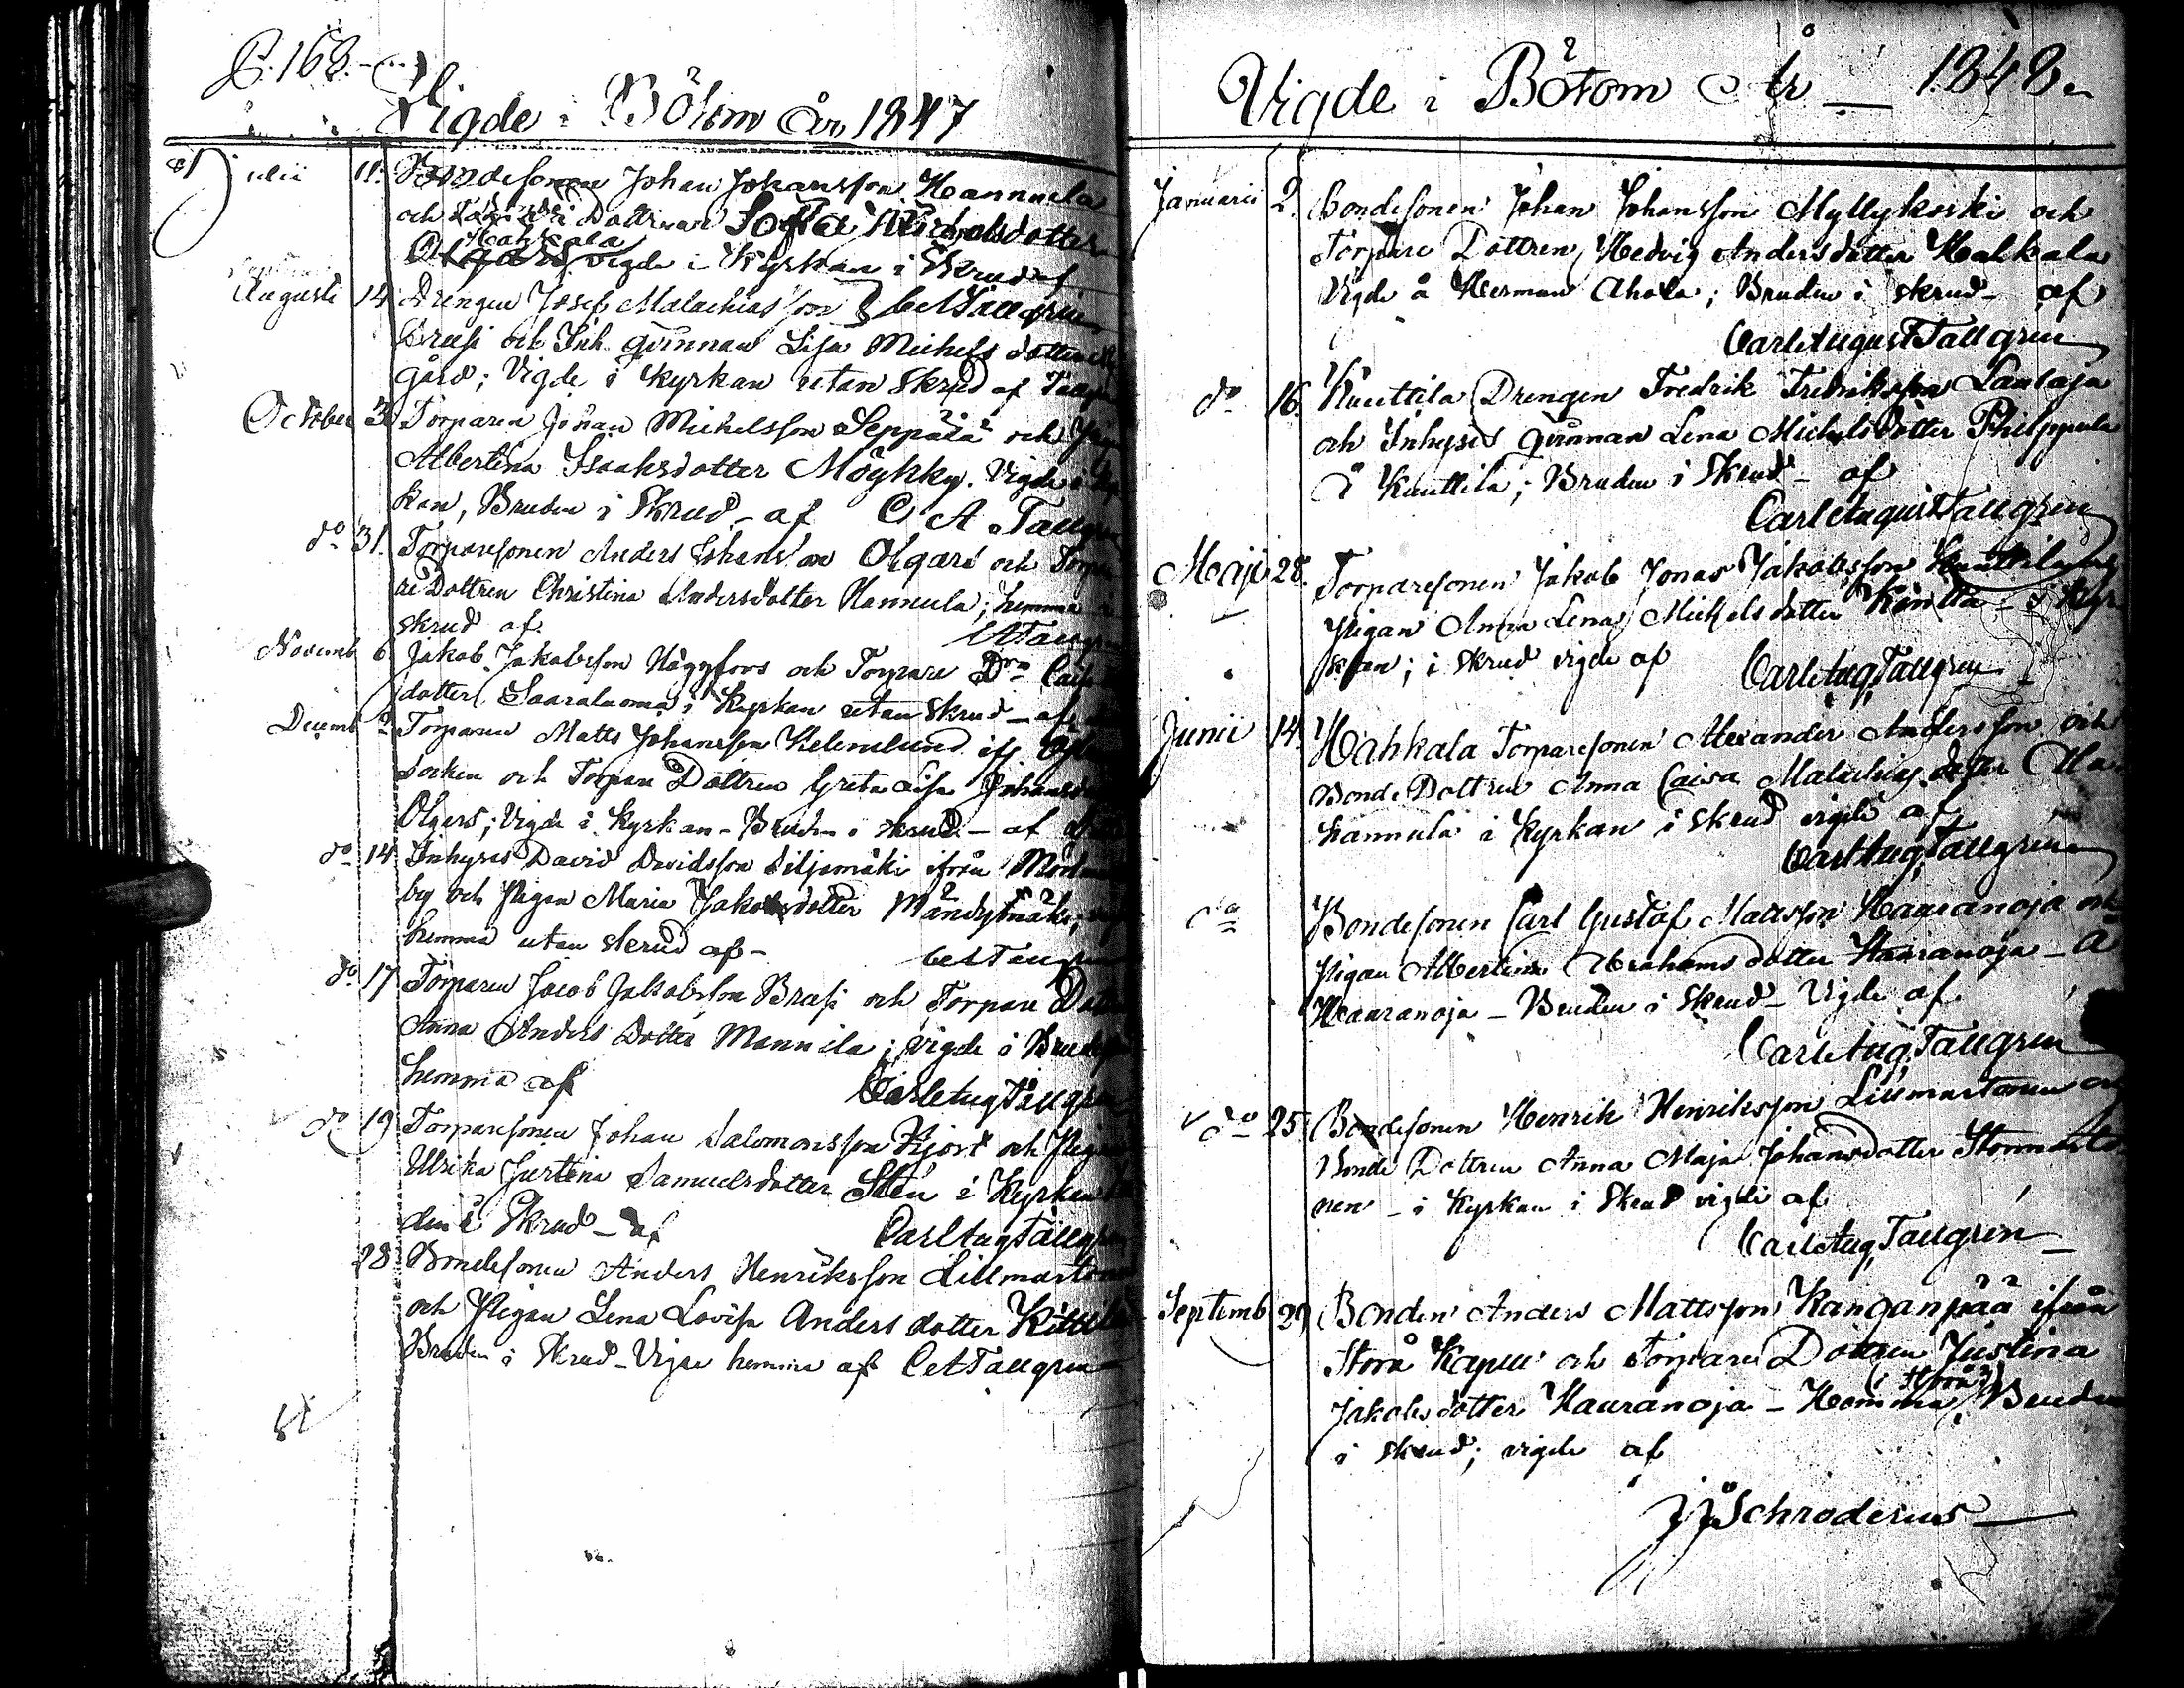 P. 168.
Vigde i Bötom År 1847
Julii 11. Bondesonen Johan Johansson Hannula
och Dottren Sofia Michelsdotter
Hahkala
Olgars vigde i Kyrkan i Skrud af
Augusti 14 Drengen Josef Malachiasson CATallgren
Brusi och Inh. qvinnan Lisa Michels dotter
gård; Vigde i Kyrkan utan Skrud af Tallgren
October 3. Torparen Johan Michelsson Seppälä och
Albertina Isaaksdotter Möykky. Vigde i
kan, Bruden i Skrud - af C A Tallgren
do 31. Torparesonen Anders Johansson Olgars och Torpa
re Dottren Christina Andersdotter Hannula; hemma i
skrud af. CATallgren
Novemb 6 Jakob Jakobsson Häggfors och Torpare Dr
dotter Saaraluoma i Kyrkan utan Skrud - af
Decemb 2 Torparen Matts Johansson
socken och Torpare Dottren Greta Lisa Johansd
Olgers; Vigde i Kyrkan - Bruden i skrud - af
do 14 Inhyses David Davidsson Siljamäki ifrån
by och Pigan Maria Jakobsdotter Mändymäki;
hemma utan skrud af - CATallgren
do 17 Torparen Jacob Jakobsson Brusi och Torpare Dott
Anna Anders Dotter Mannila; vigde i Brudskrud
hemma af Carl Aug Tallgren
do 19 Torparesonen Johan Salomonsson Hjort och Pigan
Ulrika Justina Samuelsdotter Stén i Kyrkan
den i Skrud - af Carl Aug Tallgren
28 Bondesonen Anders Henriksson Lillmartonen
och Pigan Lena Lovisa Anders dotter
Bruden i Skrud - Vigde hemma af CATallgren
Vigde i Bötom År 1848
Januarii 2. Bondesonen Johan Johansson Myllykoski och
Torpare Dottren Hedvig Anders dotter Hahkala
Vigde å Herman Ahola; Bruden i skrud - af
Carl August Tallgren
do 16. Knuttila Drengen Fredrik Fredriksson Lautaja
och Inhyses qvinnan Lena Michelsdotter Philppula
å Knuttila; Bruden i Skrud - af
Carl August Tallgren
Maji 28. Torparesonen Jakob Jonas Jakobsson Knuttila och
Pigan Anna Lena Michels dotter - i Kyr
kan; i skrud vigde af Carl Aug Tallgren
Junii 14. Hahkala Torparesonen Alexander Andersson och
Bonde Dottren Anna Caisa Malachias dotter
hannula i Kyrkan i skrud vigde af
Carl Aug Tallgren
do Bondesonen Carl Gustaf Mattsson Hauranoja och
Pigan Albertina Abrahams dotter Hauranoja - å
Hauranoja - Bruden i Skrud - Vigde af
Carl Aug Tallgren
do 25 Bondesonen Henrik Henriksson Lillmartonen och
Bonde Dottren Anna Maja Johansdotter Stormarto
nen - i Kyrkan i Skrud vigde af
Carl Aug Tallgren
Septemb 29 Bonden Anders Mattsson Kanganpää ifrån
Storå Kapell och Torpare Dottren Justina
(i Storå)
Jakobs dotter Hauranoja - Hemma, Bruden
i skrud; vigde af
JJSchroderus